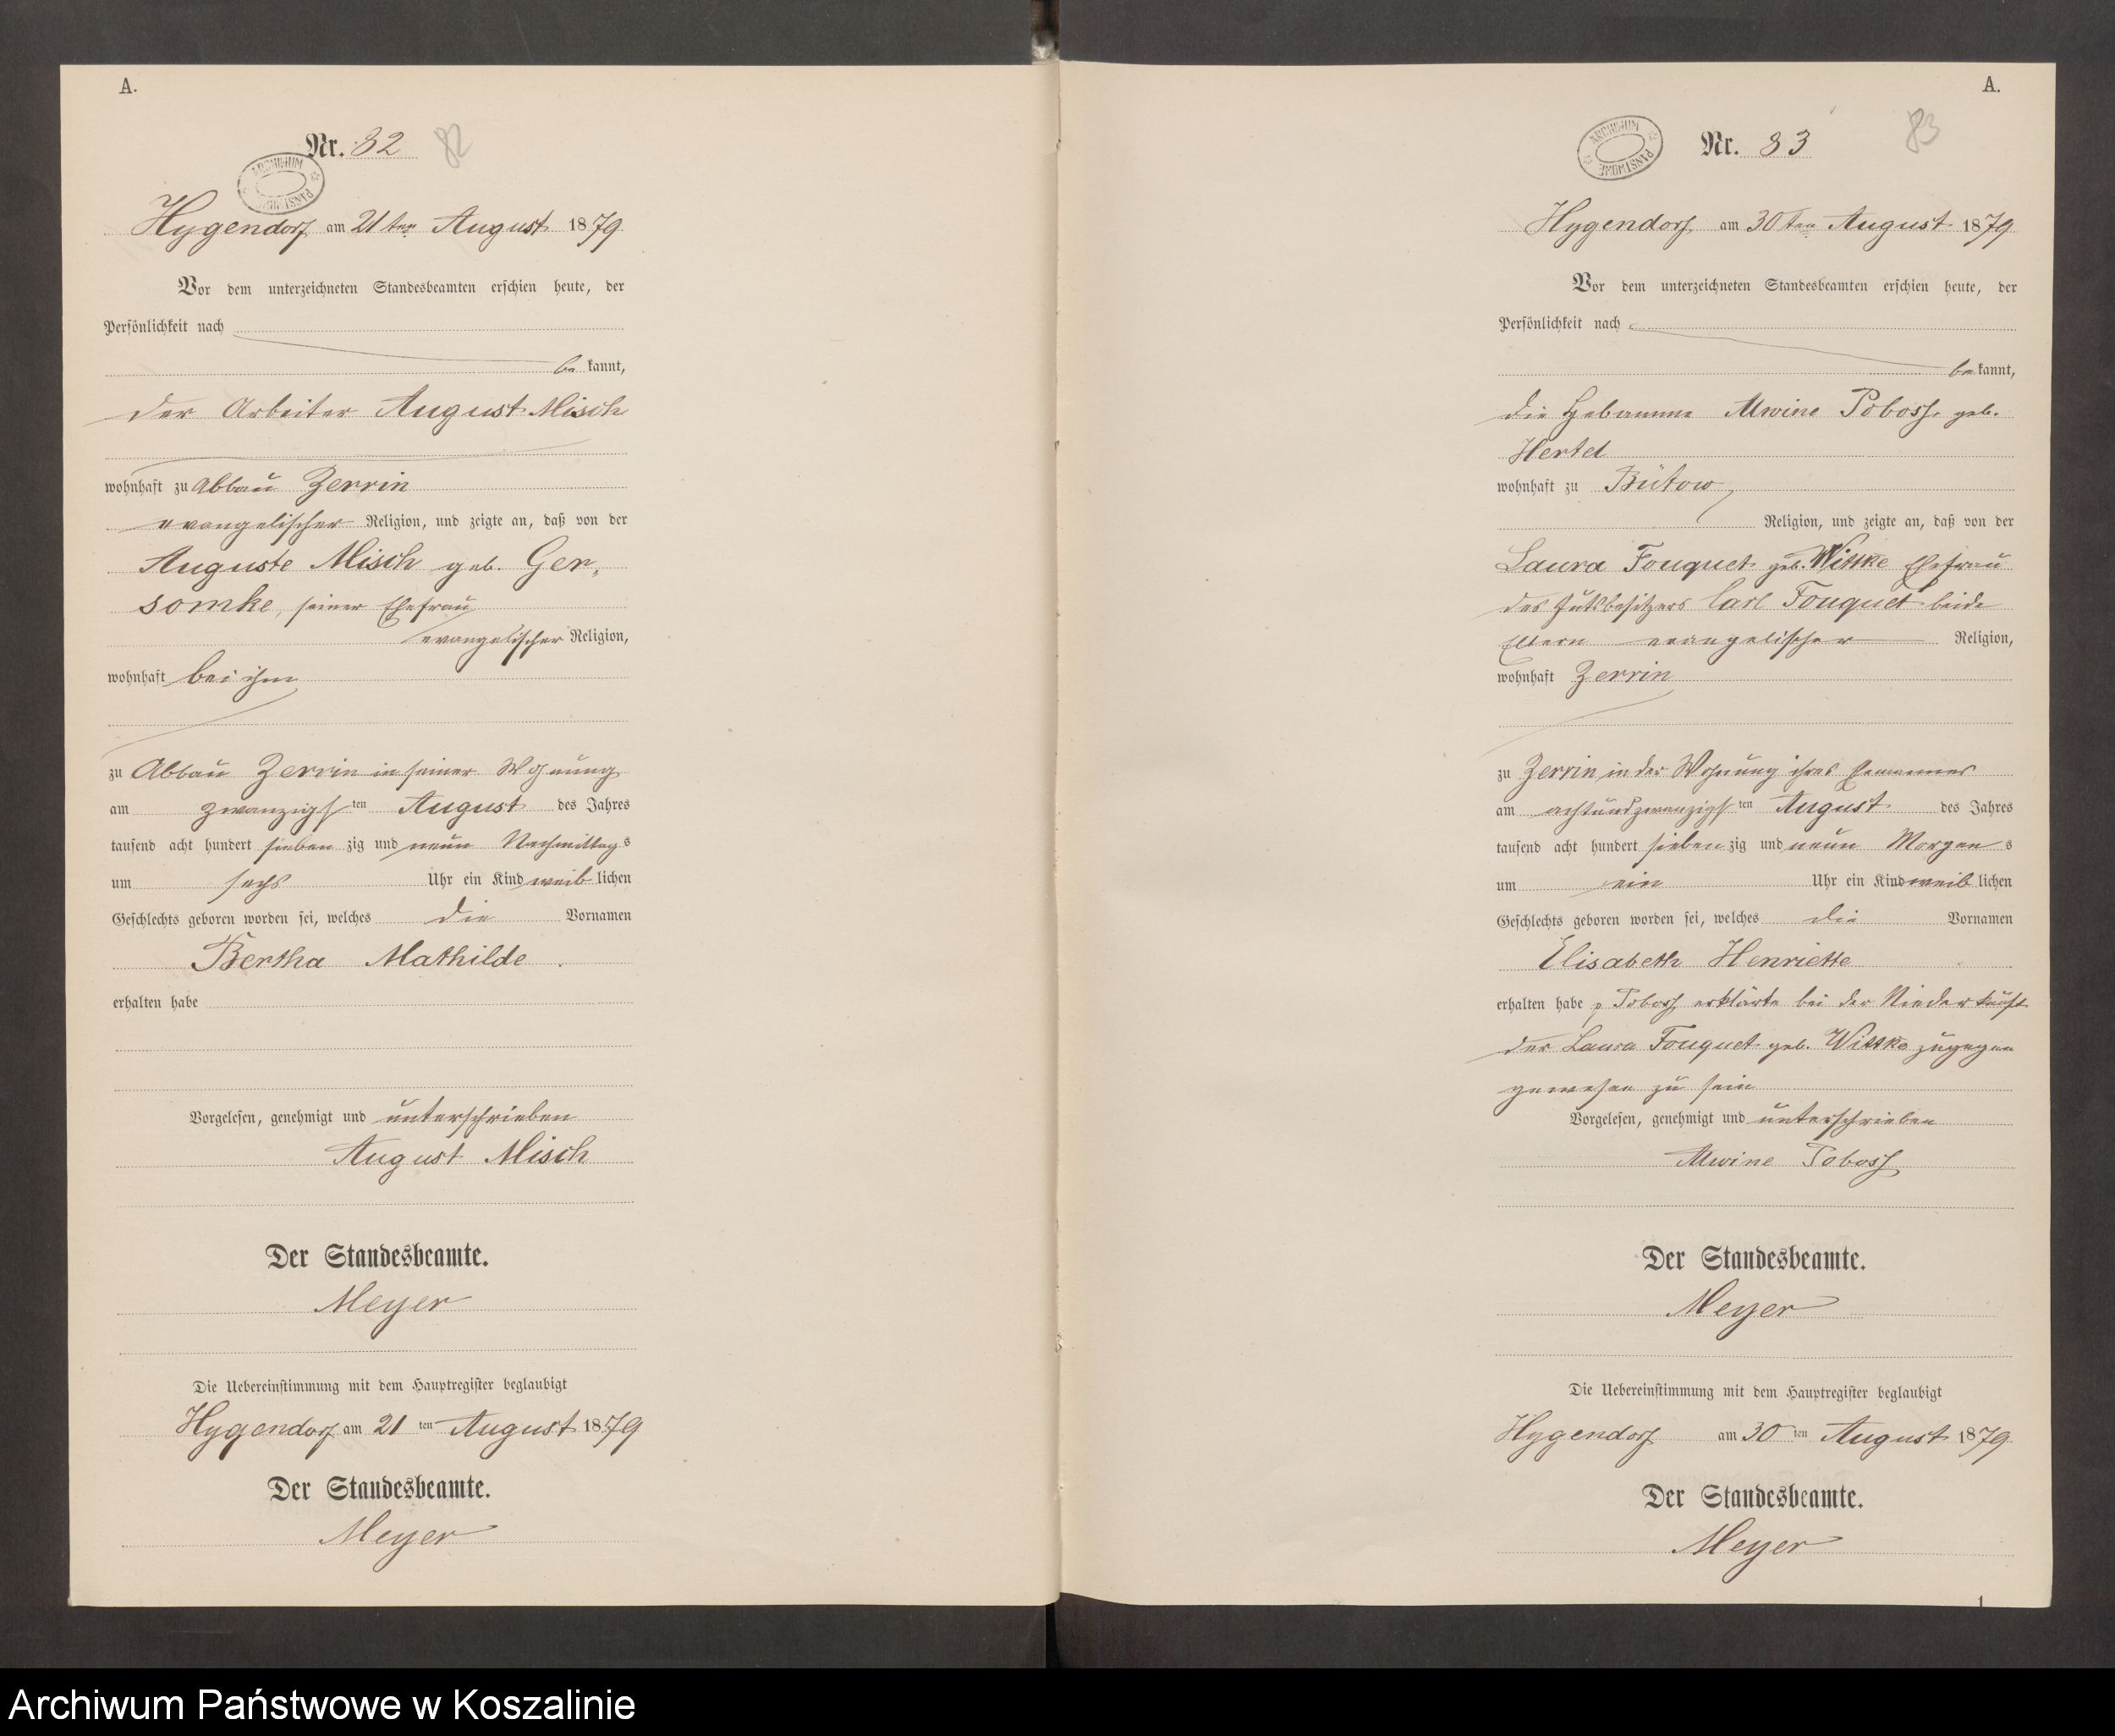 A.
Nr. 82 82
ARCHIWUM PAŃSTWOWE
Hygendorf am 21ten August 1879
Vor dem unterzeichneten Standesbeamten erschien heute, der
Persönlichkeit nach
be kannt,
der Arbeiter August Misch
wohnhaft zu Abbau Zerrin
evangelischer Religion, und zeigte an, daß von der
Auguste Misch geb. Ger-
somke, seiner Ehefrau
evangelischer Religion,
wohnhaft bei ihm
zu Abbau Zerrin in seiner Wohnung
am zwanzigsten August des Jahres
tausend acht hundert siebenzig und neun Nachmittags
um sechs Uhr ein Kind weiblichen
Geschlechts geboren worden sei, welches die Vornamen
Bertha Mathilde
erhalten habe
Vorgelesen, genehmigt und unterschrieben
August Misch
Der Standesbeamte.
Meyer
Die Uebereinstimmung mit dem Hauptregister beglaubigt
Hygendorf am 21ten August 1879
Der Standesbeamte.
Meyer
A.
ARCHIWUM PAŃSTWOWE
Nr. 83 83
Hygendorf am 30ten August 1879
Vor dem unterzeichneten Standesbeamten erschien heute, der
Persönlichkeit nach
bekannt,
die Hebamme Alwine geb.
Hertel
wohnhaft zu Bütow,
Religion, und zeigte an, daß von der
Laura Fouquet geb. Wittke Ehefrau
des Gutsbesitzers Carl Fouquet beide
Eltern evangelischer Religion,
wohnhaft Zerrin
zu Zerrin in der Wohnung ihres Ehemannes
am achtundzwanzigsten August des Jahres
tausend acht hundert siebenzig und neun Morgens
um ein Uhr ein Kind weiblichen
Geschlechts geboren worden sei, welches die Vornamen
Elisabeth Henriette
erhalten habe erklärte bei der Niederkunft
der Laura Fouquet geb. Wittke zugegen
gewesen zu sein
Vorgelesen, genehmigt und unterschrieben
Alwine
Der Standesbeamte.
Meyer
Die Uebereinstimmung mit dem Hauptregister beglaubigt
Hygendorf am 30ten August 1879
Der Standesbeamte.
Meyer
1
Archiwum Państwowe w Koszalinie